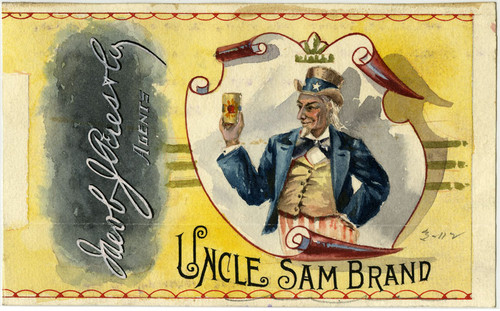 Jacob J Peres & Co
AGENTS
UNCLE SAM BRAND